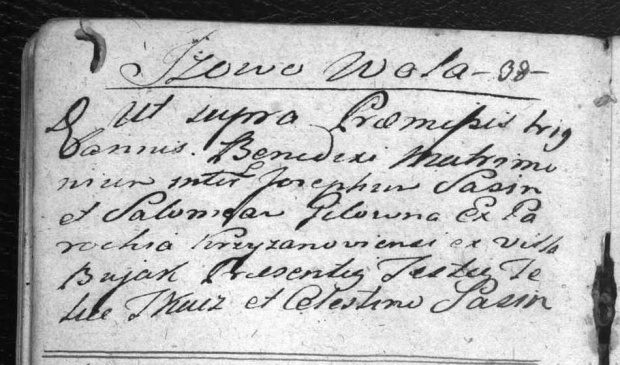 Izowo Wola - 38 -
D Ut supra Præmissis trig
bannis. Benedixi Matrimo
nium inter Josephum Sasin
et Salomeam Gelowna Ex Pa
rochia Krzyzanoviensi ex Villa
Bujak Præsentes Testes
et Celestino Sasin